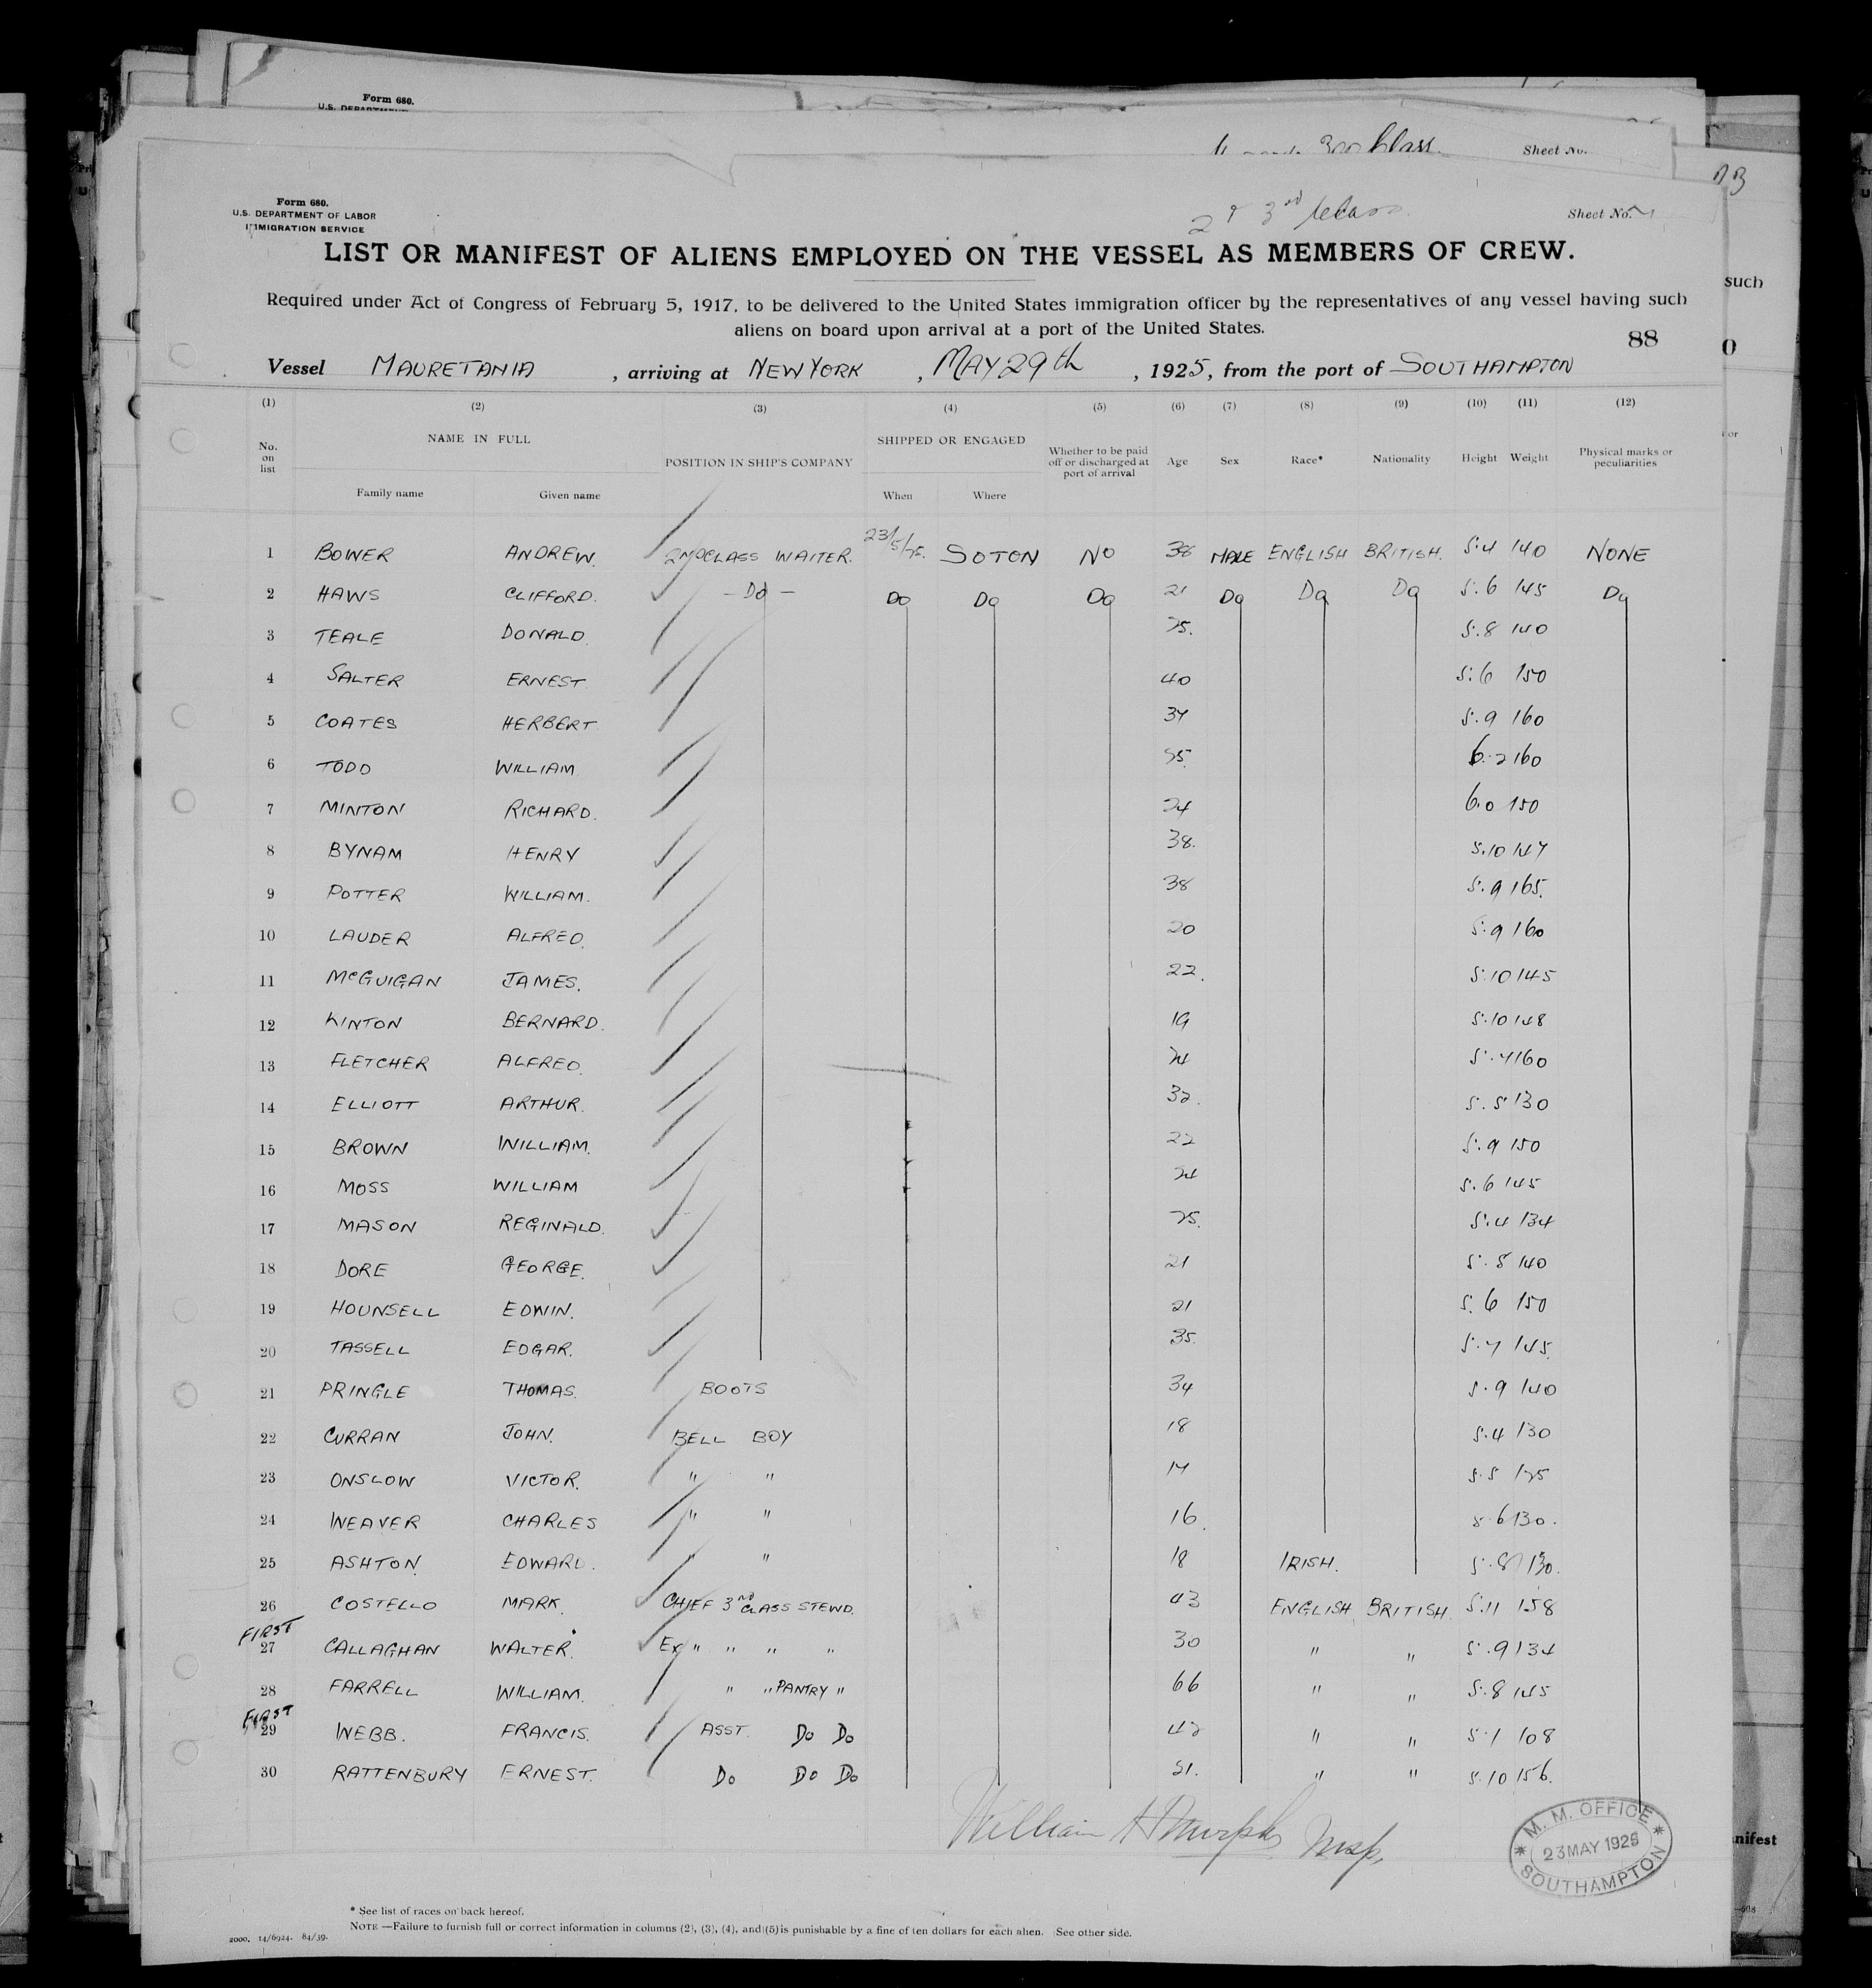 Form 680.
U.S. DEPARTMENT
3rd Class. Sheet No.
Form 680.
U.S. DEPARTMENT OF LABOR
IMMIGRATION SERVICE
2 & 3rd Class. Sheet No.
LIST OR MANIFEST OF ALIENS EMPLOYED ON THE VESSEL AS MEMBERS OF CREW.
Required under Act of Congress of February 5, 1917, to be delivered to the United States immigration officer by the representatives of any vessel having such
aliens on board upon arrival at a port of the United States.
88
Vessel MAURETANIA, arriving at NEW YORK, MAY 29th, 1925, from the port of SOUTHAMPTON
(1) (2) (3) (4) (5) (6) (7) (8) (9) (10) (11) (12)
No. on list NAME IN FULL POSITION IN SHIP'S COMPANY SHIPPED OR ENGAGED Whether to be paid off or discharged at port of arrival Age Sex Race* Nationality Height Weight Physical marks or peculiarities
Family name Given name When Where
1 BOWER ANDREW. 2ND CLASS WAITER. 23/5/25. SOTON NO 38 MALE ENGLISH BRITISH. 5.4 140 NONE
2 HAWS CLIFFORD. - Do - Do Do Do 21 Do Do Do 5.6 145 Do
3 TEALE DONALD. 25. 5.8 140
4 SALTER ERNEST. 40 5.6 150
5 COATES HERBERT 37 5.9 160
6 TODD WILLIAM 35. 6.2 160
7 MINTON RICHARD. 24 6.0 150
8 BYNAM HENRY 38. 5.10 147
9 POTTER WILLIAM. 38 5.9 165.
10 LAUDER ALFRED. 20 5.9 160
11 McGUIGAN JAMES. 22. 5.10 145
12 KINTON BERNARD. 19 5.10 148
13 FLETCHER ALFRED. 24 5.7 160
14 ELLIOTT ARTHUR. 32. 5.5 130
15 BROWN WILLIAM. 22 5.9 150
16 MOSS WILLIAM 24 5.6 145
17 MASON REGINALD. 25. 5.4 134
18 DORE GEORGE. 21 5.8 140
19 HOUNSELL EDWIN. 21 5.6 150
20 TASSELL EDGAR. 35. 5.7 145.
21 PRINGLE THOMAS. BOOTS 34 5.9 140
22 CURRAN JOHN. BELL BOY 18 5.4 130
23 ONSLOW VICTOR. " " 17 5.5 125
24 WEAVER CHARLES " " 16. 5.6 130.
25 ASHTON. EDWARD. " " 18 IRISH. 5.8 130.
26 COSTELLO MARK. CHIEF 3rd CLASS STEWD. 43 ENGLISH BRITISH. 5.11 158
FIRST
27 CALLAGHAN WALTER. Ex " " " " 30 " " 5.9 134
28 FARRELL WILLIAM. " " PANTRY " 66 " " 5.8 145
FIRST
29 WEBB. FRANCIS. ASST. Do Do 42 " " 5.1 108
30 RATTENBURY ERNEST. Do Do Do 21. " " 5.10 156.
William H Murphy Insp.
M. M. OFFICE
23 MAY 1925
SOUTHAMPTON
* See list of races on back hereof.
NOTE —Failure to furnish full or correct information in columns (2), (3), (4), and (5) is punishable by a fine of ten dollars for each alien. See other side.
2000. 14/6924. 84/39.
such
nifest